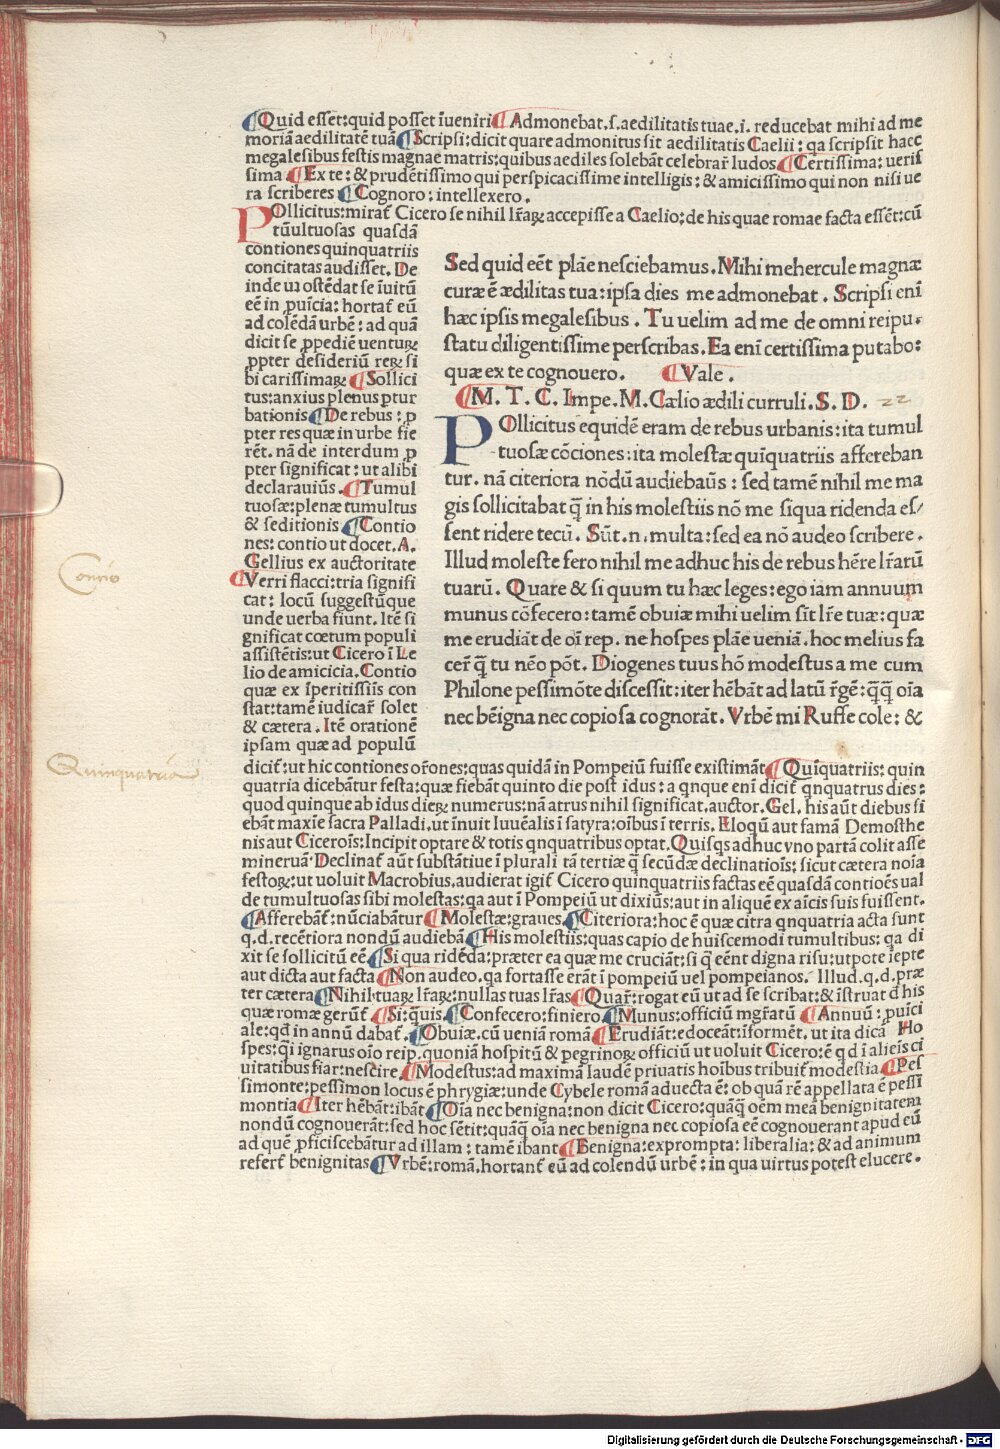 ¶Quid esset:quid posset īueniri¶Admonebat.s.aedilitatis tuae.i. reducebat mihi ad me
moriā aedilitatē tuā¶Scripsi:dicit quare admonitus sit aedilitatis Caelii: qa scripsit haec
megalesibus festis magnae matris:quibus aediles solebāt celebrar̃ ludos¶Certissima: ueris
sima ¶Ex te: & prudētissimo qui perspicacissime intelligis: & amicissimo qui non nisi ue
ra scriberes¶Cognoro: intellexero.
POllicitus:mirat̃ Cicero se nihil lr̃aꝝ accepisse a Caelio:de his quae romae facta essēt:cū
tūultuosas quasdā
contiones quinquatriis
concitatas audisset. De
inde ui ostēdat se īuitū
eē in ꝓuīcia: hortat̃ eū
ad colēdā urbē: ad quā
dicit se ꝓpediē uentuꝝ
ꝓpter desideriū reꝝ si
bi carissimaꝝ ¶Sollici
tus:anxius plenus ꝑtur
bationis¶De rebus: ꝓ
pter res quæ in urbe fie
rēt. nā de interdum ꝓ
pter significat: ut alibi
declarauiūs.¶Tumul
tuosæ:plenæ tumultus
& seditionis¶Contio
nes: contio ut docet. A.
Gellius ex auctoritate
¶Verri flacci:tria signifi
cat: locū suggestūque
unde uerba fiunt. Itē si
gnificat cœtum populi
assistētis:ut Cicero ī Le
lio de amicicia. Contio
quæ ex īperitissiīs con
stat:tamē iudicar̃ solet
& cætera. Itē orationē
ipsam quæ ad populū
Sed quid eēt plāe nesciebamus. Mihi mehercule magnæ
curæ ē ædilitas tua:ipsa dies me admonebat. Scripsi enī
hæc ipsis megalesibus. Tu uelim ad me de omni reipu.
statu diligentissime perscribas. Ea enī certissima putabo:
quæ ex te cognouero. ¶Vale.
¶M. T. C. Impe. M. Calio ædili curruli. S. D. 22
POllicitus equidē eram de rebus urbanis:ita tumul
tuosæ cōciones:ita molestæ quīquatriis affereban
tur. nā citeriora nōdū audiebaūs: sed tamē nihil me ma
gis sollicitabat q̄ in his molestiis nō me siqua ridenda es/
sent ridere tecū. Sūt.n.multa:sed ea nō audeo scribere.
Illud moleste fero nihil me adhuc his de rebus hēre lr̃arū
tuarū. Quare & si quum tu hæc leges:ego iam annuum
munus cōfecero:tamē obuiæ mihi uelim sīt lr̃e tuæ:quæ
me erudiāt de oī rep. ne hospes plāe ueniā. hoc melius fa
cer̃ q̄ tu nēo pōt. Diogenes tuus hō modestus a me cum
Philone pessimōte discessit:iter hēbāt ad latū r̃gē:q̄q̄ oīa
nec bēigna nec copiosa cognorāt. Vrbē mi Ruffe cole: &
Concio
Quinquatria
dicit̃:ut hic contiones or̃ones:quas quidā in Pompeiū fuisse existimāt¶Quīquatriis: quin
quatria dicebātur festa:quæ fiebāt quinto die post idus: a qnque enī dicit̃ qnquatrus dies:
quod quinque ab idus dieꝝ numerus:nā atrus nihil significat.auctor.Gel. his aūt diebus fi
ebāt maxīe sacra Palladi.ut īnuit Iuuēalis ī satyra:oībus ī terris. Eloqū aut famā Demosthe
nis aut Ciceroīs:Incipit optare & totis qnquatribus optat. Quisqs adhuc vno partā colit asse
mineruā Declinat̃ aūt substātiue ī plurali tā tertiæ q̄ secūdæ declinatioīs: sicut cætera noīa
festoꝝ:ut uoluit Macrobius.audierat igit̃ Cicero quinquatriis factas eē quasdā contioēs ual
de tumultuosas sibi molestas:qa aut ī Pompeiū ut dixiūs:aut in aliquē ex aīcis suis fuissent.
¶Afferebāt̃: nūciabātur¶Molestæ:graues.¶Citeriora:hoc ē quæ citra qnquatria acta sunt
q.d.recētiora nondū audiebā¶His molestiis:quas capio de huiscemodi tumultibus: qa di
xit se sollicitū eē¶Si qua ridēda:præter ea quæ me cruciāt:si q̄ eēnt digna risu:utpote īepte
aut dicta aut facta¶Non audeo.qa fortasse erāt ī pompeiū uel pompeianos. Illud.q.d.præ
ter cætera¶Nihil:tuaꝝ lr̃aꝝ:nullas tuas lr̃as¶Quar̃:rogat eū ut ad se scribat:& īstruat d his
quæ romæ gerūt̃ ¶Si:quis.¶Confecero:finiero¶Munus:officiū mgr̃atū ¶Annuū: ꝓuīci
ale:qd in annū dabat̃.¶Obuiæ.cū ueniā romā¶Erudiāt:edoceāt:īformēt. ut ita dicā Ho
spes:q̄i ignarus oīo reip.quoniā hospitū & pegrinoꝝ officiū ut uoluit Cicero:ē qd ī alieīs ci
uitatibus fiar:nescire.¶Modestus:ad maximā laudē priuatis hoībus tribuit̃ modestia.¶Pes
simonte:pessimon locus ē phrygiæ:unde Cybele romā aduecta ē: ob quā rē appellata ē pessi
montia¶Iter hēbāt:ibāt¶Oīa nec benigna:non dicit Cicero:quāq̄ oēm meā benignitatem
nondū cognouerāt:sed hoc sētit:quāq̄ oīa nec benigna nec copiosa eē cognouerant apud eū
ad quē ꝓficiscebātur ad illam: tamē ibant¶Benigna:exprompta: liberalia: & ad animum
refert̃ benignitas¶Vrbē:romā.hortant̃ eū ad colendū urbē: in qua uirtus potest elucere.
Digitalisierung gefördert durch die Deutsche Forschungsgemeinschaft - DFG